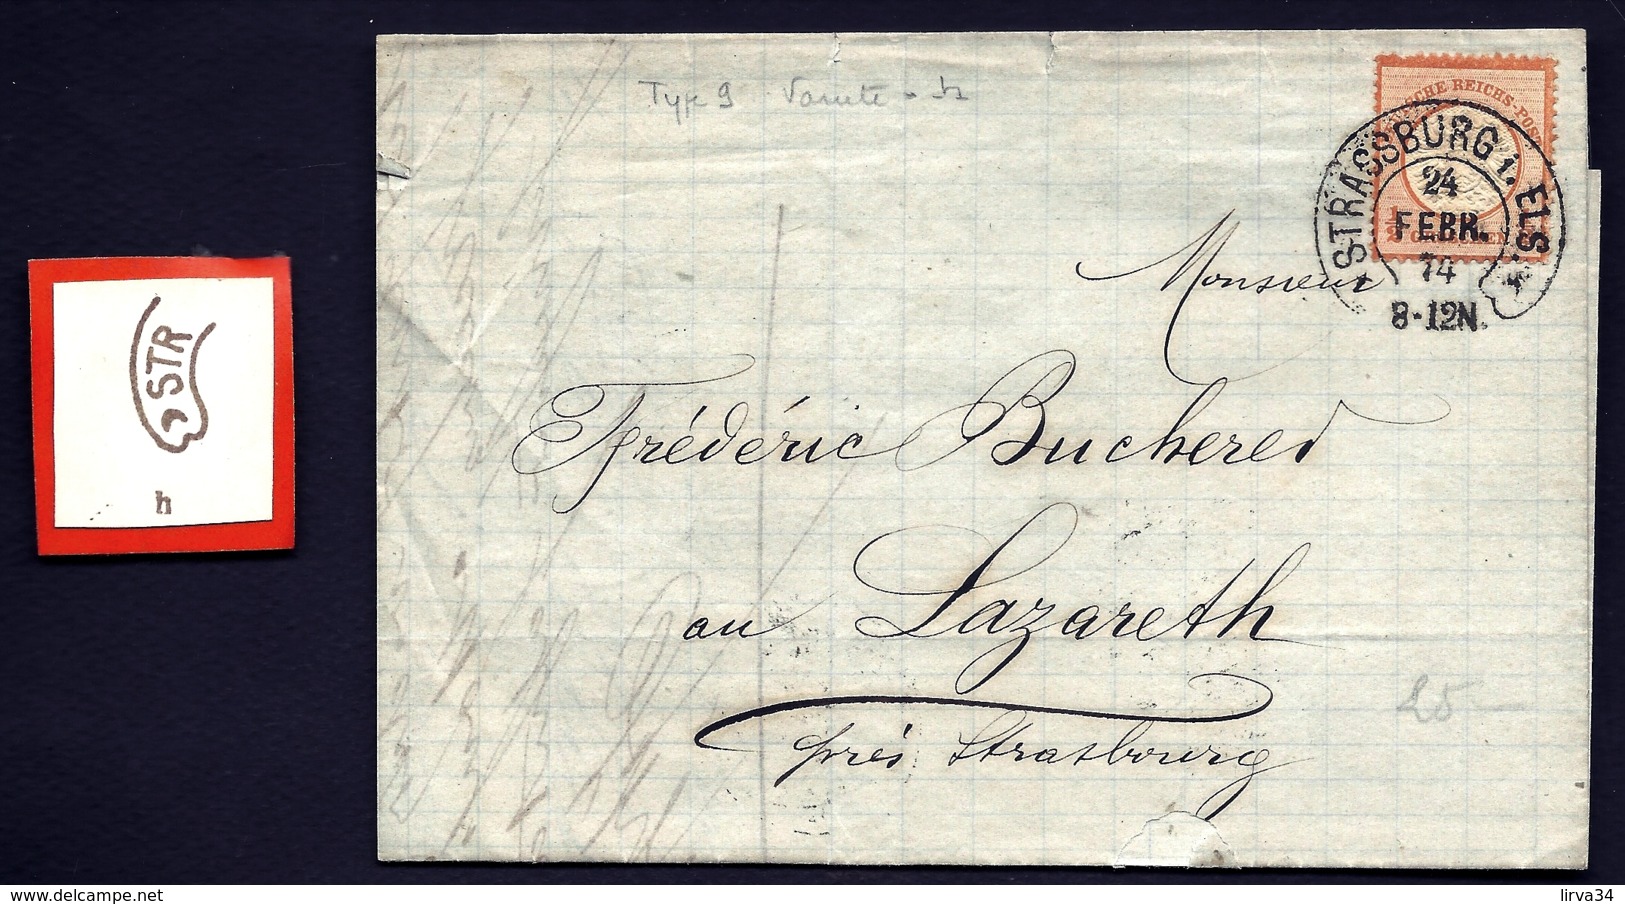 Type 9 Varieté - h
DEUTSCHE REICHS-POST
1/2 GROSCHEN 1/2
STRASSBURG i. ELS.
24
FEBR.
74
8-12N.
STR
h
Monsieur
Frédéric Bucherer
au Lazareth
près Strasbourg
25
lirva34